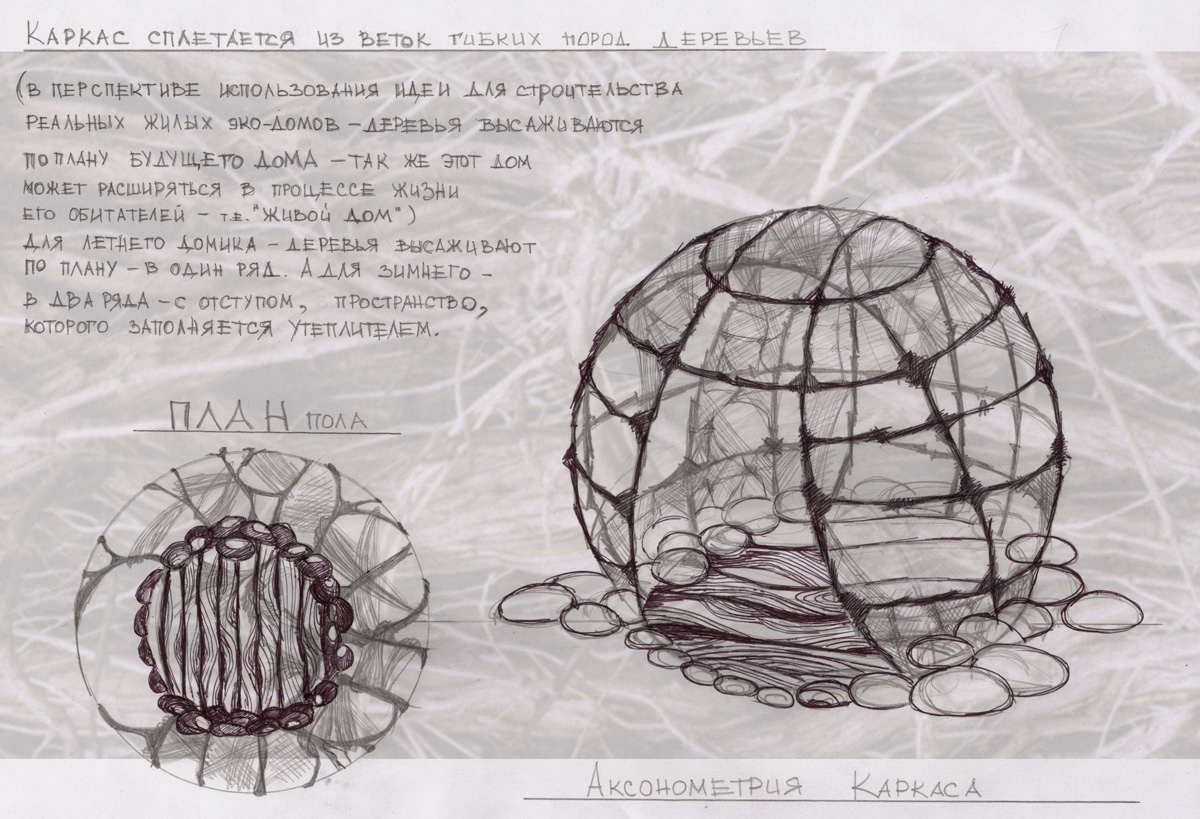 Каркас сплетается из веток гибких пород деревьев
(в перспективе использования идеи для строительства
реальных жилых эко-домов – деревья высаживаются
по плану будущего дома – так же этот дом
может расширяться в процессе жизни
его обитателей – т.е. "Живой дом")
Для летнего домика – деревья высаживают
по плану – в один ряд. А для зимнего –
в два ряда – с отступом, пространство,
которого заполняется утеплителем.
ПЛАН пола
Аксонометрия Каркаса